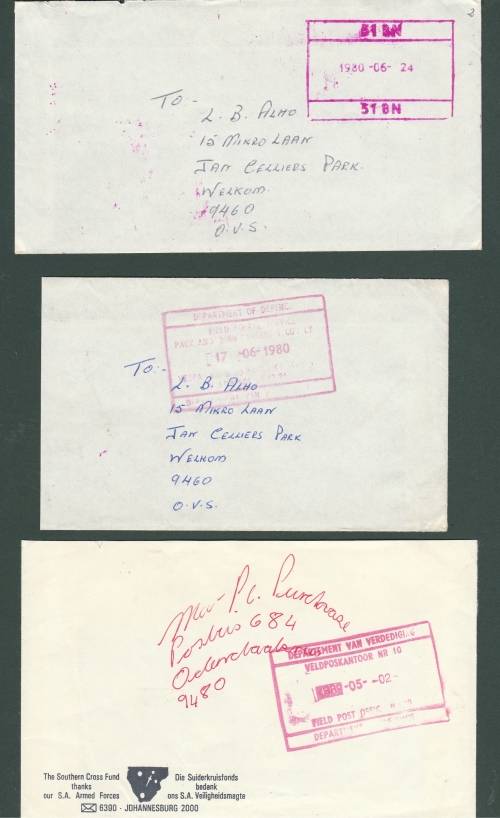 2
51 BN
1980 -06- 24
51 BN
TO -
L. B. ALHO
15 MIKRO LAAN
JAN CELLIERS PARK.
WELKOM.
9460
O.V.S.
DEPARTMENT OF DEFENC
FIELD POSTAL SERVICE
17 -06- 1980
TO:-
L. B. ALHO
15 MIKRO LAAN
JAN CELLIERS PARK
WELKOM
9460
O.V.S.
Mev P. C. Purchase
Posbus 684
Odendaalsrus
9480
DEPARTEMENT VAN VERDEDIGING
VELDPOSKANTOOR NR 10
-05- -02-
FIELD POST OFFICE
DEPARTMENT
The Southern Cross Fund
thanks
our S.A. Armed Forces
Die Suiderkruisfonds
bedank
ons S.A. Veiligheidsmagte
6390 - JOHANNESBURG 2000